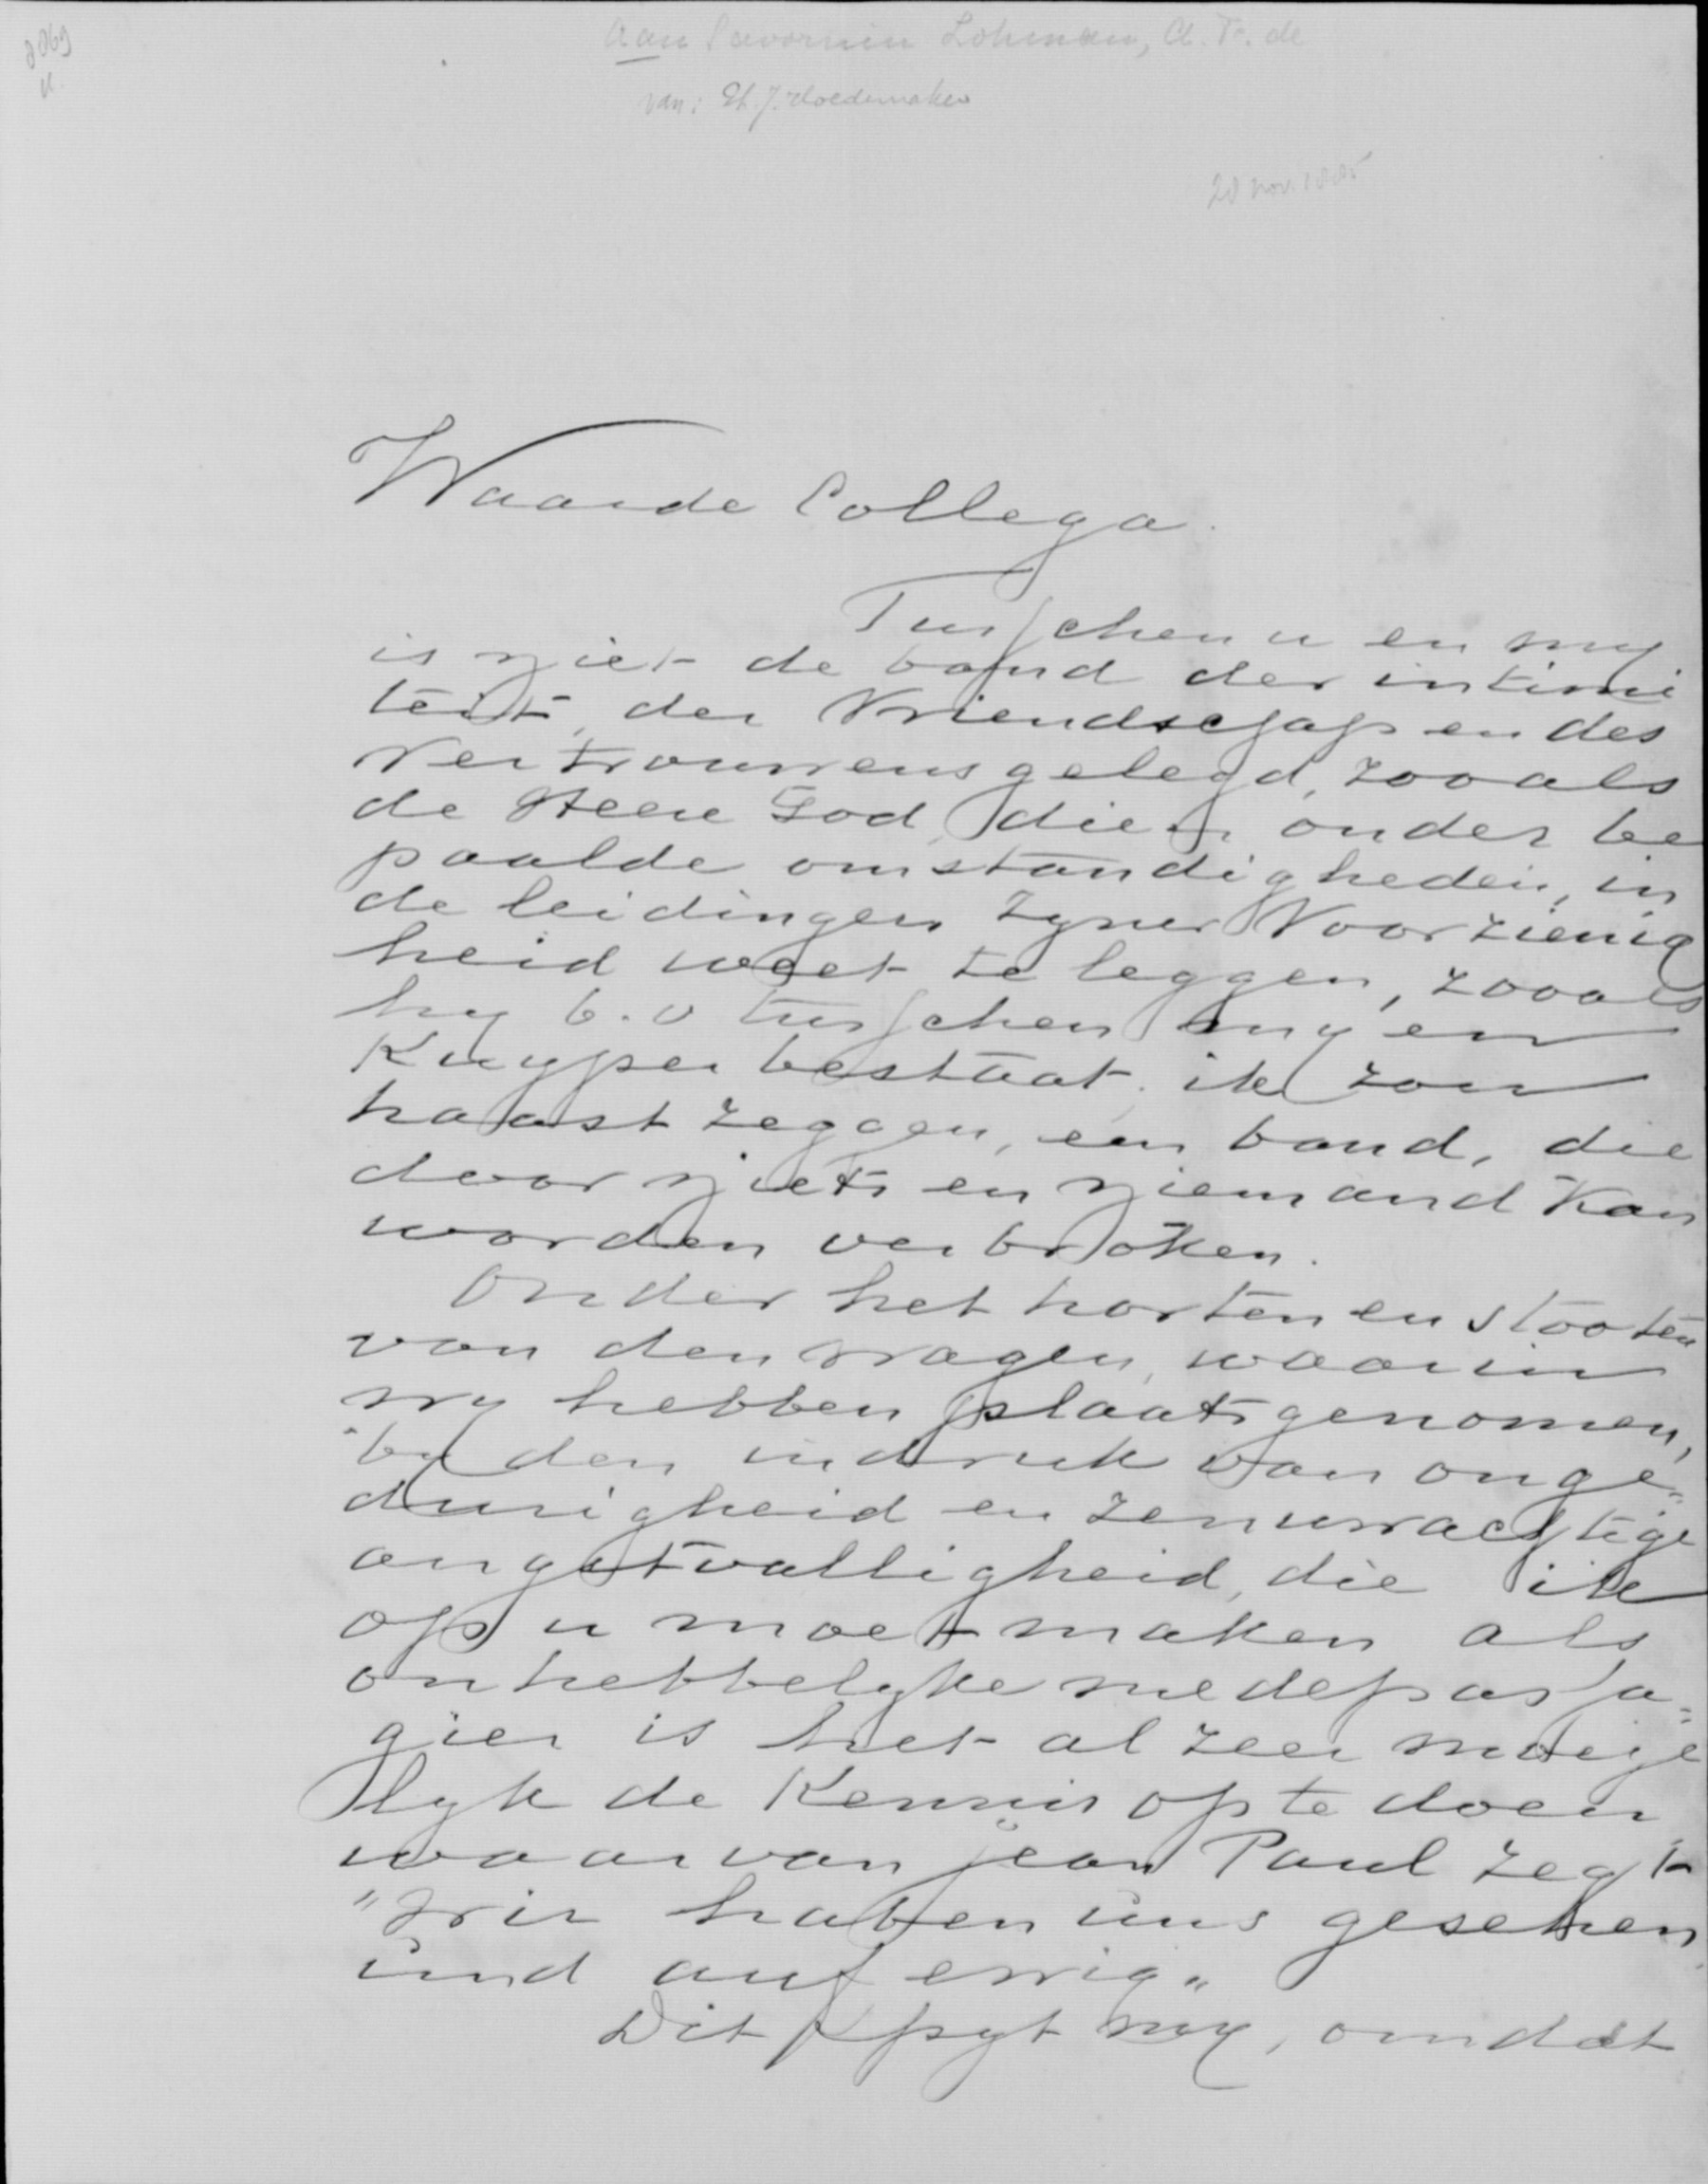 Aan Savornin Lohman, A. F. de
van: Ph. J. Hoedemaker
20 nov. 1885
Waarde Collega.
Tusschen u en my
is niet de band der intimi
teit, der Vriendschap en des
Vertrouwens gelegd, zooals
de Heere God dien onder be
paalde omstandigheden, in
de leidingen zyner Voorzienig
heid weet te leggen, zooals
hy b.v tusschen my en
Kuyper bestaat, ik zou
haast zeggen, een band, die
door niets en niemand kan
worden verbroken.
Onder het horten en stooten
van den wagen, waarin
wy hebben plaats genomen,
by den indruk van onge=
durigheid en zenuwachtige
angstvalligheid, die ik
op u moet maken als
onhebbelyke medepassa=
gier is het al zeer moeije
lyk de Kennis op te doen
waarvan jean Paul zegt
"Wir haben uns gesehen
und auf ewig"
Dit spyt my, omdat